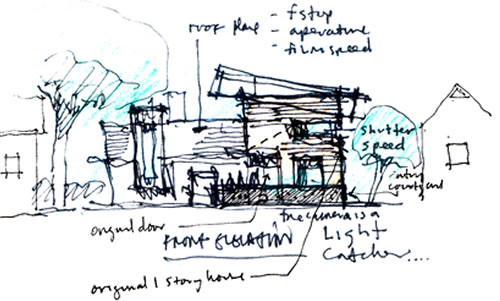 roof plane
- f stop
- aperature
- film speed
shutter
speed
intr
courtyard
original door
FRONT ELEVATION
the camera is a
Light
Catcher....
original 1 story house